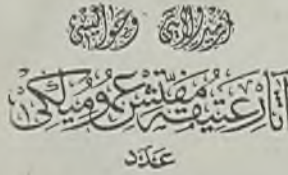 ازمير ولايتى وحواليسى
آثار عتيقه مفتش عموميلكى
عدد